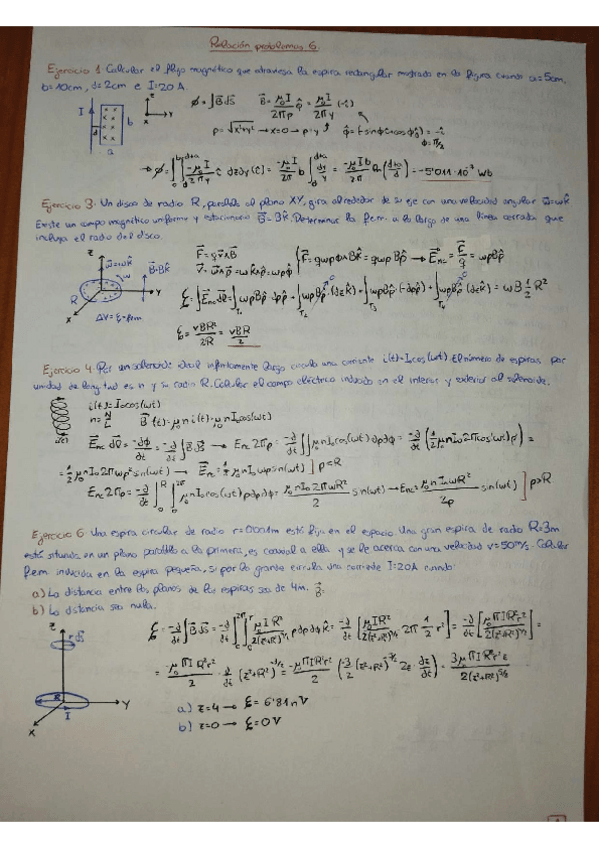 Relación problemas 6.
Ejercicio 1. Calcular el flujo magnético que atraviesa la espira rectangular mostrada en la figura cuando a=5cm,
b=10cm, d=2cm e I=20A.
I d b a z x y
ϕ=∫B⃗dS⃗ B⃗=μ₀I/2πρ φ̂=μ₀I/2πy (-î)
ρ=√(x²+y²) → x=0 → ρ=y φ=π/2
→ ϕ=∫∫ -μ₀I/2πy dzdy = -μ₀I/2π b ∫ dy/y = -μ₀Ib/2π ln((d+a)/d) = -5'011·10⁻⁷ Wb
Ejercicio 3. Un disco de radio R, paralelo al plano XY, gira alrededor de su eje con una velocidad angular ω⃗=ωk̂
Existe un campo magnético uniforme y estacionario B⃗=Bk̂. Determinar la f.e.m. a lo largo de una línea cerrada que
incluya el radio del disco.
z ω⃗=ωk̂ ω B⃗=Bk̂ R x y
F⃗=qv⃗∧B⃗
v⃗=ω⃗∧ρ⃗=ωk̂∧ρρ̂=ωρφ̂
F⃗=qωρφ̂∧Bk̂=qωρBρ̂ → E⃗nc=F⃗/q=ωρBρ̂
ΔV=ξ=fem
ξ=∫E⃗nc dl⃗=∫ωρBρ̂·dρρ̂+∫ωρBρ̂·(dzk̂)+∫ωρBρ̂·(-dρρ̂)+∫ωρBρ̂·(dzk̂)=ωB ½R²
ξ=vBR²/2R=vBR/2
Ejercicio 4. Por un solenoide ideal infinitamente largo circula una corriente i(t)=I₀cos(ωt). El número de espiras por
unidad de longitud es n y su radio R. Calcular el campo eléctrico inducido en el interior y exterior al solenoide.
i(t)=I₀cos(ωt)
n=N/L B⃗(t)=μ₀ni(t)=μ₀nI₀cos(ωt)
E⃗nc dl⃗=-dϕ/dt=-d/dt∫B⃗dS⃗ → Enc2πρ=-d/dt∫∫μ₀nI₀cos(ωt)ρdρdφ=-d/dt(½μ₀nI₀2πcos(ωt)ρ²)=
=½μ₀nI₀2πωρ²sin(ωt) → E⃗nc=½μ₀nI₀ωρsin(ωt) ] ρ<R
Enc2πρ=-d/dt∫₀ᴿ∫₀²π μ₀nI₀cos(ωt)ρdρdφ=μ₀nI₀2πωR²/2 sin(ωt) → Enc=μ₀nI₀ωR²/2ρ sin(ωt) ] ρ>R
Ejercicio 6. Una espira circular de radio r=0'001m está fija en el espacio. Una gran espira de radio R=3m
está situada en un plano paralelo a la primera, es coaxial a ella y se le acerca con una velocidad v=50m/s. Calcular
f.e.m inducida en la espira pequeña, si por la grande circula una corriente I=20A cuando:
a) La distancia entre los planos de las espiras sea de 4m. B⃗
b) La distancia sea nula.
z r dS⃗ R I x y
ξ=-d/dt∫B⃗dS⃗=-d/dt∫∫ μ₀IR²/2(z²+R²)^3/2 ρdρdφ=-d/dt[μ₀IR²/2(z²+R²)^3/2 2π ½r²]=-d/dt[μ₀πIR²r²/2(z²+R²)^3/2]=
=-μ₀πIR²r²/2 · d/dt(z²+R²)^-3/2=-μ₀πIR²r²/2(-3/2(z²+R²)^-5/2 2z·dz/dt)=3μ₀πIR²r²z/2(z²+R²)^5/2
a) z=4 → ξ=6'81nV
b) z=0 → ξ=0V